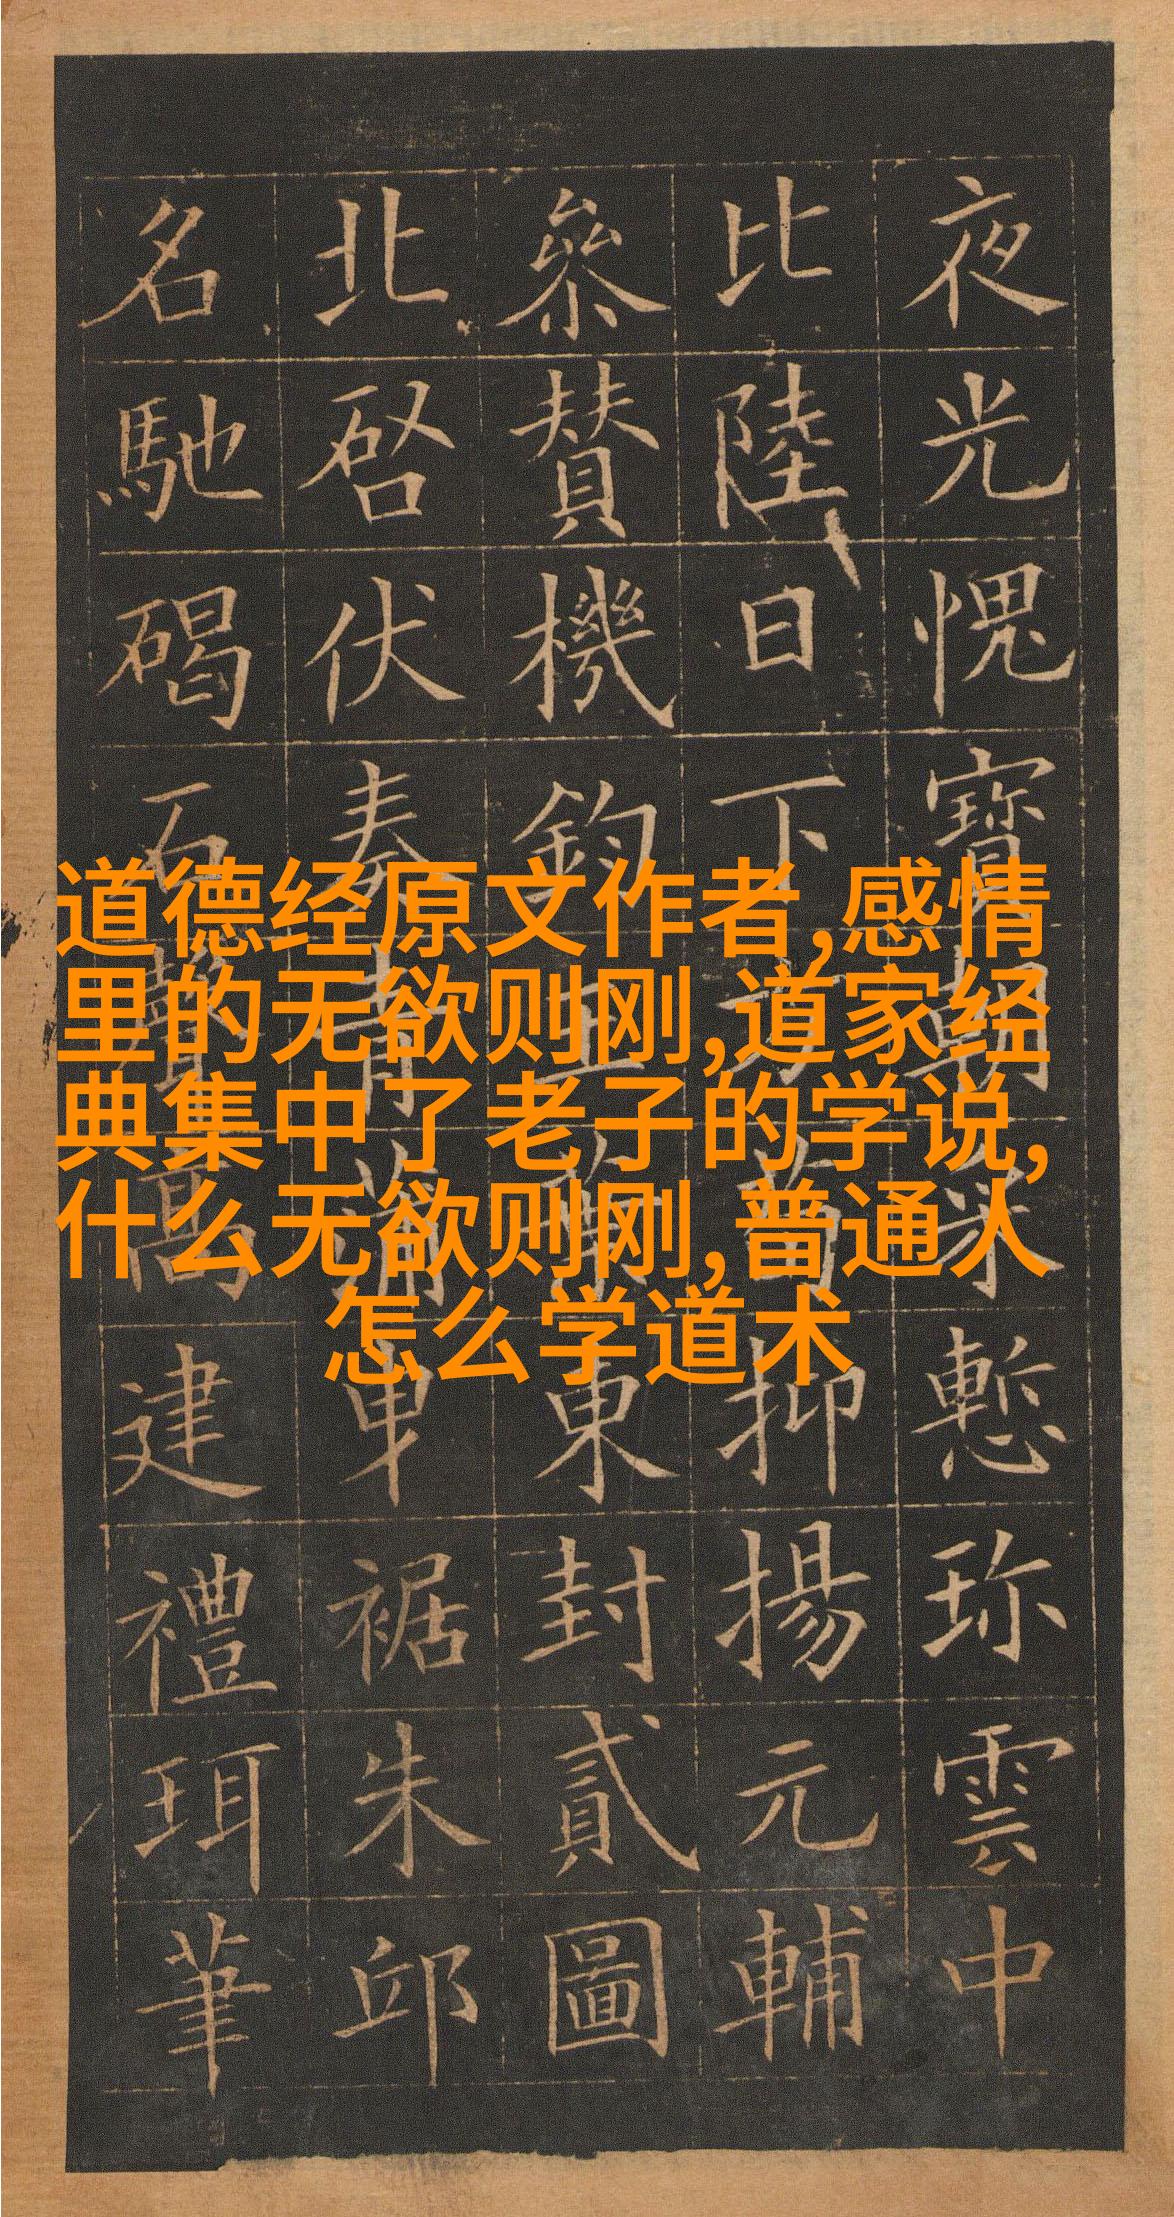 夜光愧寶朝采慙珎雲中
比陸日下方荀抑揚元輔
參賛機鈞王東封貳圖
北啓伏奏青蒲曳裾朱邱
名馳碣石譽高建禮珥筆
道德经原文作者,感情
里的无欲则刚,道家经
典集中了老子的学说,
什么无欲则刚,普通人
怎么学道术